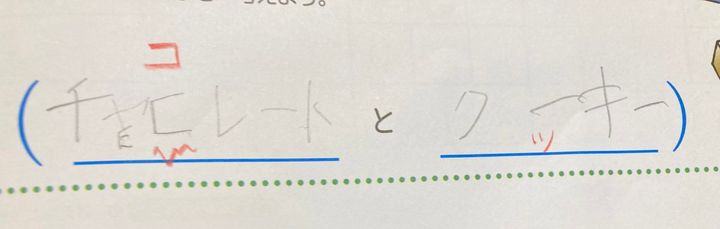 コ
(チョコレート と クーキー)
ッ